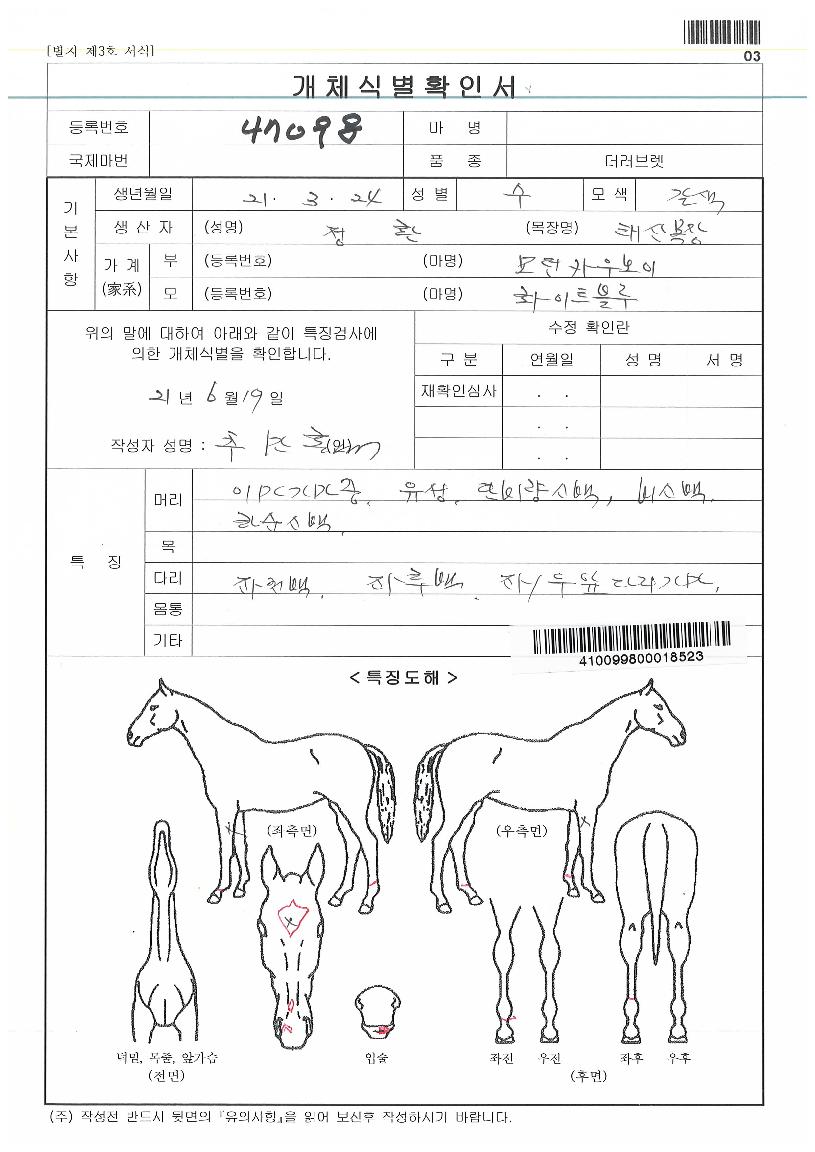 [별지 제3호 서식]
03
개체식별확인서
등록번호 470098 마 명
국제마번 품 종 더러브렛
기본사항
생년월일 21. 3. 24 성 별 수 모 색 갈색
생 산 자 (성명) 정 환 (목장명) 태산목장
가 계 (家系) 부 (등록번호) (마명) 모던카우보이
모 (등록번호) (마명) 화이트블루
위의 말에 대하여 아래와 같이 특징검사에
의한 개체식별을 확인합니다.
21 년 6 월 19 일
작성자 성명 : (인)
수정 확인란
구 분 연월일 성 명 서 명
재확인심사 . .
. .
. .
특 징
머리 유성, 비소백,
하순소백,
목
다리 좌후백,
몸통
기타
410099800018523
< 특징도해 >
(좌측면) (우측면)
턱밑, 목줄, 앞가슴
(전면)
입술
좌전 우전 좌후 우후
(후면)
(주) 작성전 반드시 뒷면의 『유의사항』을 읽어 보신후 작성하시기 바랍니다.